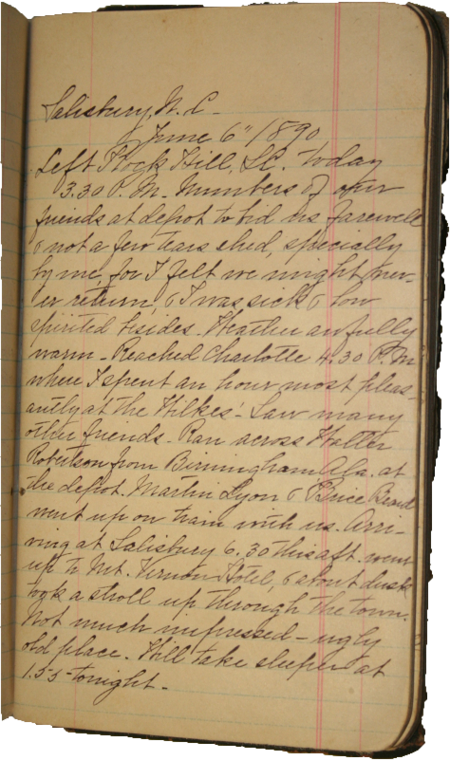 Salisbury, N. C.
June 6" 1890
Left Rock Hill, S.C. today
3.30 P. M. Numbers of our
friends at depot to bid us farewell
& not a few tears shed, specially
by me, for I felt we might nev-
er return, & I was sick & low
spirited besides. Weather awfully
warm - Reached Charlotte 4.30 P.M.
where I spent an hour most pleas-
antly at the Wilkes'. Saw many
other friends. Ran across Walter
Robertson from Birmingham Ala. at
the depot. Martin Lyon & Bruce
went up on train with us. Arri-
ving at Salisbury 6.30 this aft. went
up to Mt. Vernon Hotel, & about dusk
took a stroll up through the town.
Not much impressed - ugly
old place. Will take sleeper at
1.55 tonight -